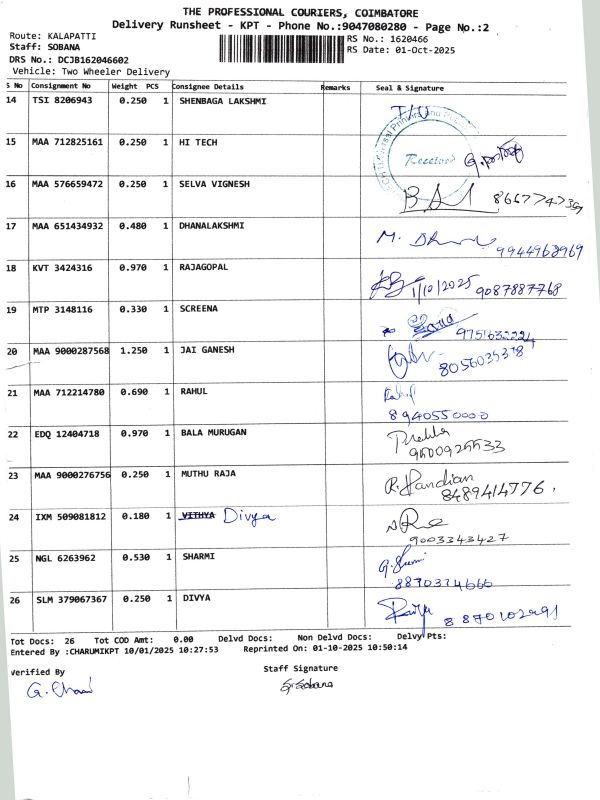 THE PROFESSIONAL COURIERS, COIMBATORE
Delivery Runsheet - KPT - Phone No.:9047080280 - Page No.:2
Route: KALAPATTI RS No.: 1620466
Staff: SOBANA RS Date: 01-Oct-2025
DRS No.: DCJB162046602
Vehicle: Two Wheeler Delivery
S No Consignment No Weight PCS Consignee Details Remarks Seal & Signature
14 TSI 8206943 0.250 1 SHENBAGA LAKSHMI
15 MAA 712825161 0.250 1 HI TECH Received
16 MAA 576659472 0.250 1 SELVA VIGNESH
17 MAA 651434932 0.480 1 DHANALAKSHMI 9944968969
18 KVT 3424316 0.970 1 RAJAGOPAL 1/10/2025 9087887768
19 MTP 3148116 0.330 1 SCREENA
20 MAA 9000287568 1.250 1 JAI GANESH 8056035378
21 MAA 712214780 0.690 1 RAHUL Rahul 8940550000
22 EDQ 12404718 0.970 1 BALA MURUGAN 9500925533
23 MAA 9000276756 0.250 1 MUTHU RAJA R. Pandian 8489414776.
24 IXM 509081812 0.180 1 VITHYA Divya 9003343427
25 NGL 6263962 0.530 1 SHARMI 8870374666
26 SLM 379067367 0.250 1 DIVYA Divya 8870102991
Tot Docs: 26 Tot COD Amt: 0.00 Delvd Docs: Non Delvd Docs: Delvy Pts:
Entered By :CHARUMIKPT 10/01/2025 10:27:53 Reprinted On: 01-10-2025 10:50:14
Verified By Staff Signature
G. Sobana